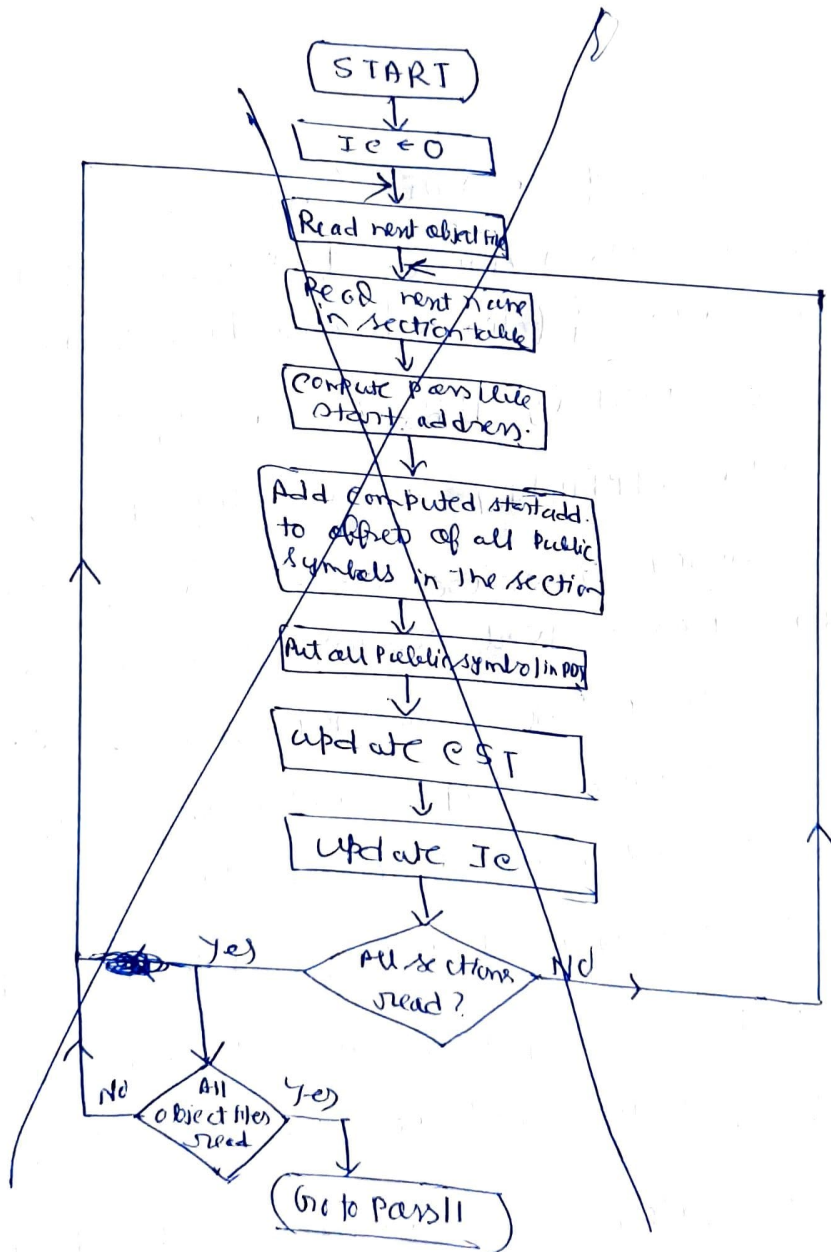 START
Ic ← 0
Read next object file
Read next name
in section table
Compute possible
start address.
Add computed start add.
to offsets of all Public
symbols in the section
Put all Public symbol in PDT
update CST
update Ic
Yes
All sections
read?
No
No
All
object files
read
Yes
Go to Pass II